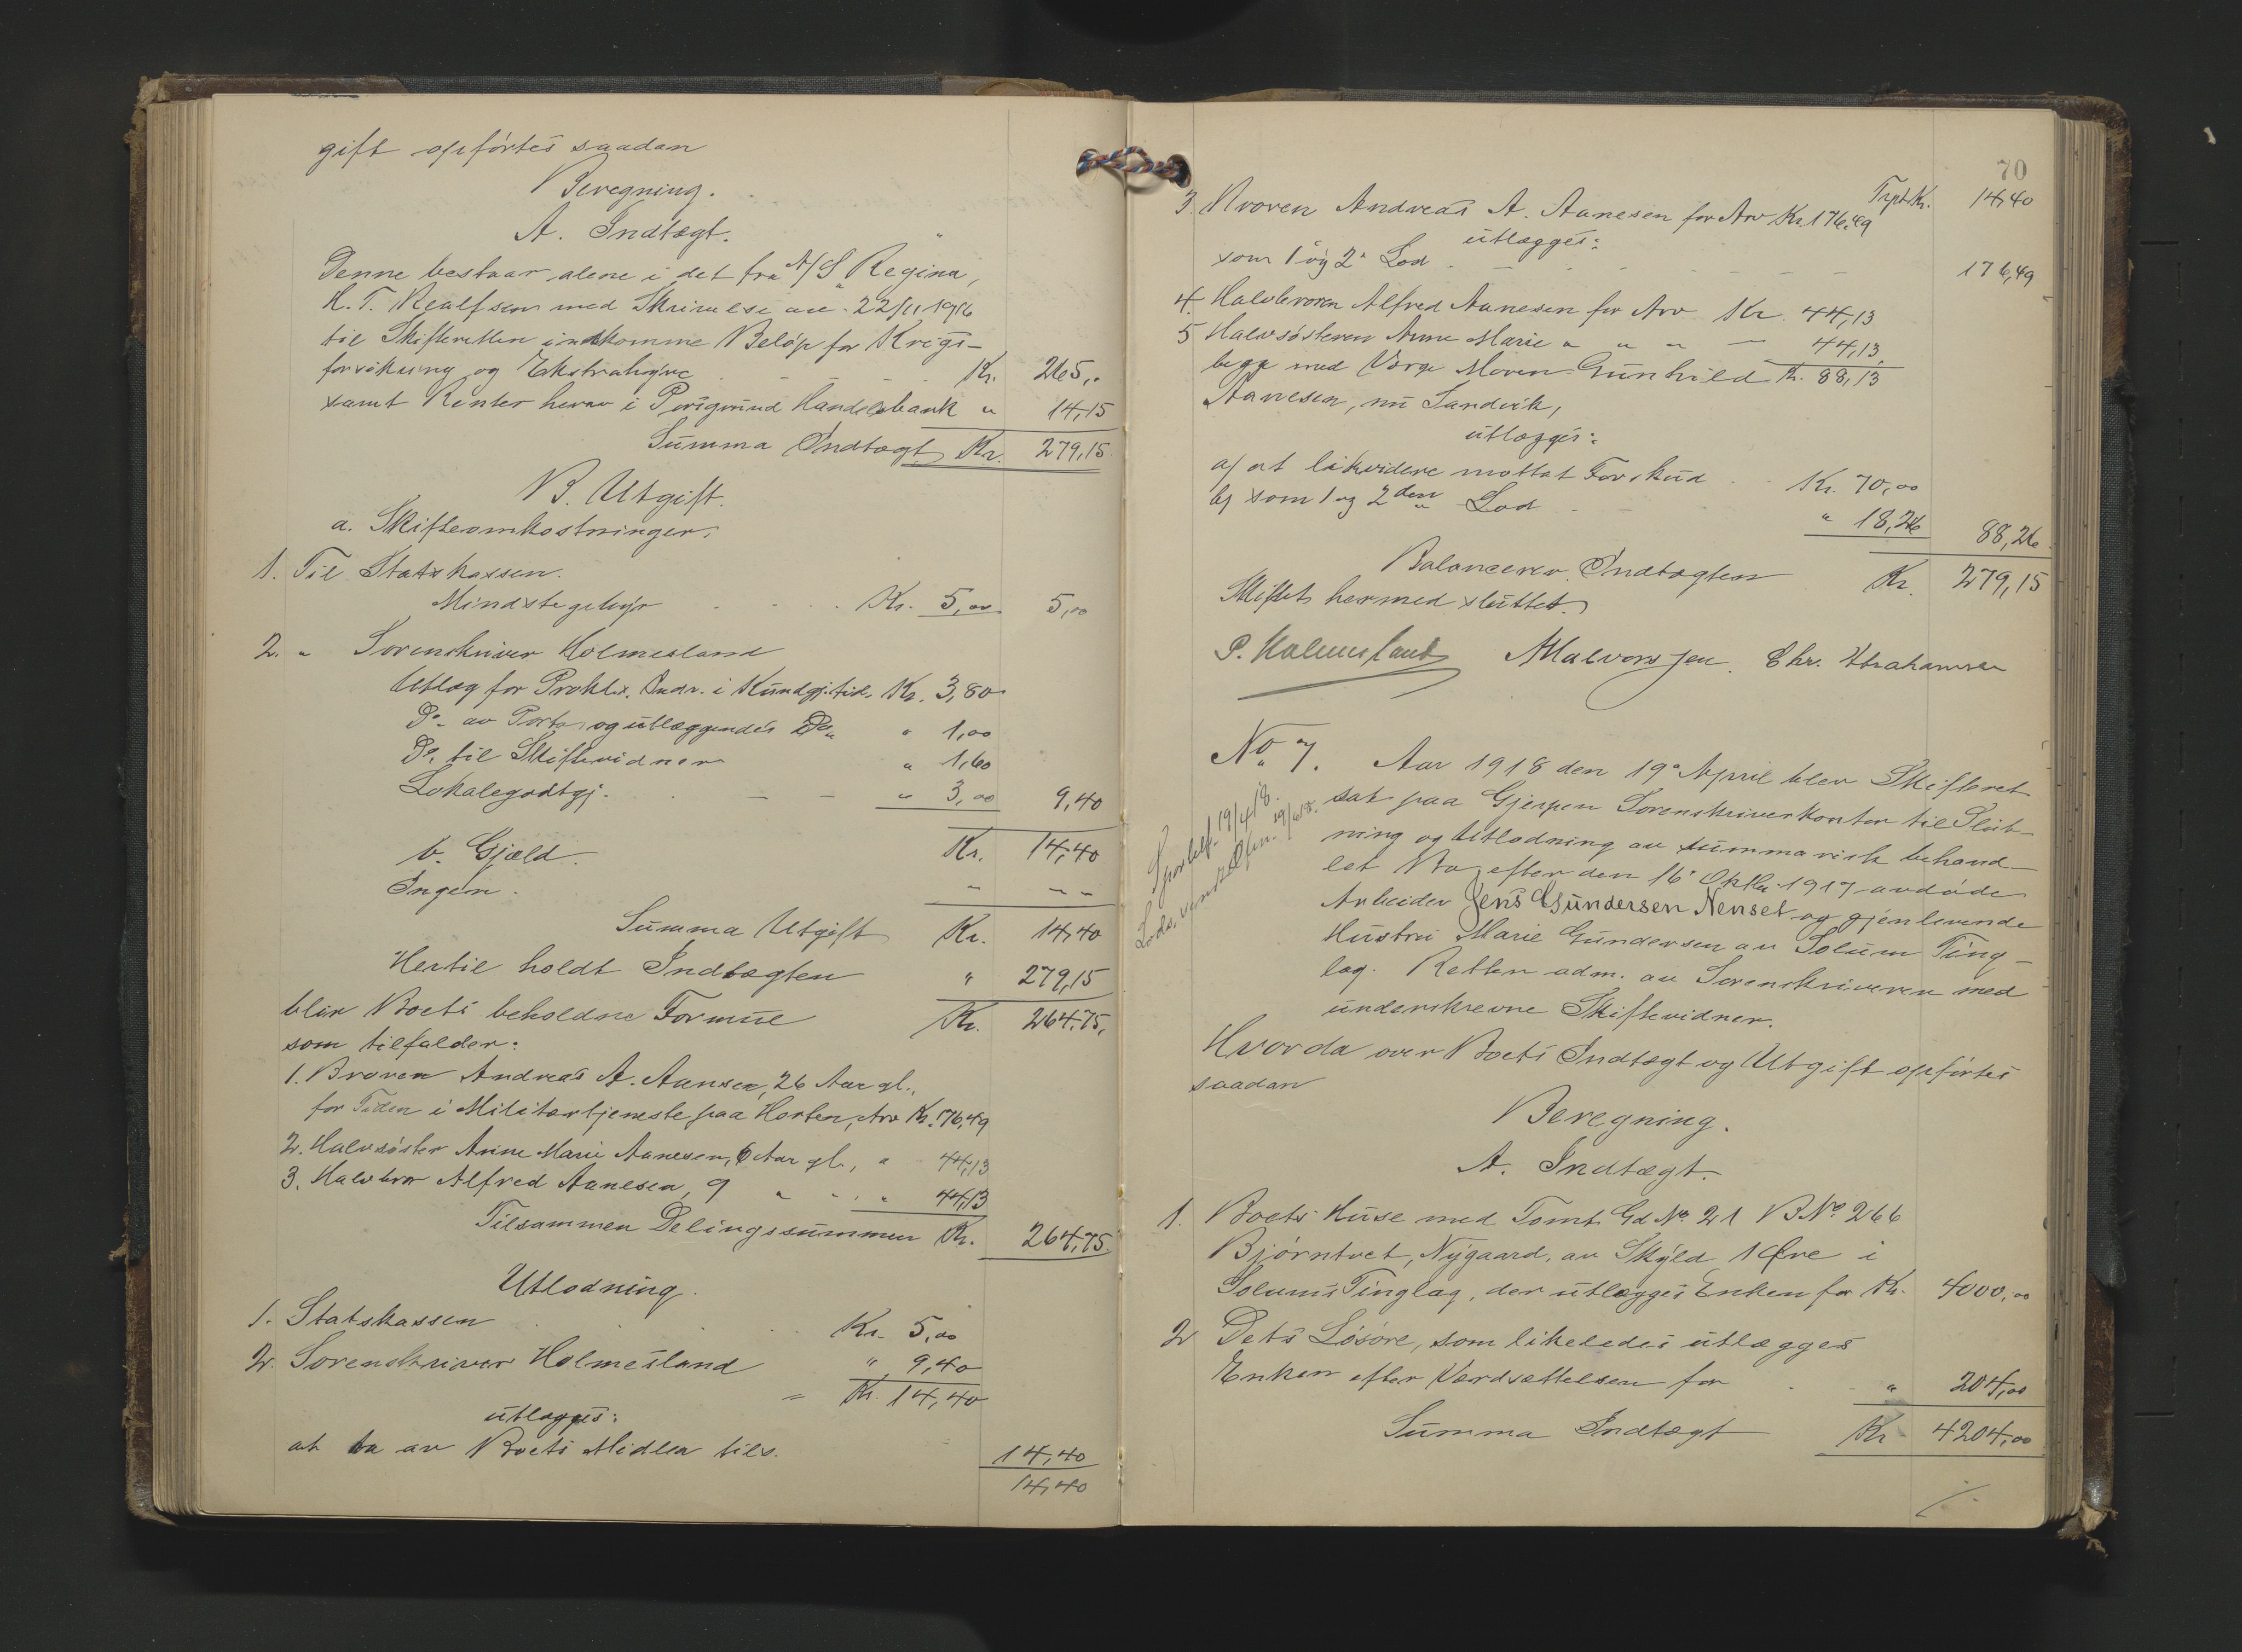 gift opførtes saadan
Beregning.
A. Indtægt.
Denne bestaar alene i det fra A/S „Regina”,
H. T. Realfsen med Skrivelse av 22/11 1916
til Skifteretten indkomne Beløp for Krigs-
forsikring og Ekstrahyre . . . Kr. 265,„
samt Renter herav i Porsgrund Handelsbank „ 14,15
Summa Indtægt Kr. 279,15.
B. Utgift.
a. Skifteomkostninger.
1. Til Statskassen.
Mindstegebyr . . . Kr. 5,00 5,00
2. „ Sorenskriver Holmesland
Utlæg for Prokl.s. Indr. i Kundgj.tid. Kr. 3,80
Do. av Porto og utlæggendes Do. „ 1,00
Do. til Skiftevidner „ 1,60
Lokalegodtgj. . — — „ 3,00 9,40
Kr. 14,40
b. Gjæld.
Ingen. „ — —
Summa Utgift Kr. 14,40
Hertil holdt Indtægten „ 279,15
blir Boets beholdne Formue Kr. 264,75.
som tilfalder:
1. Broren Andreas A. Aanesen, 26 Aar gl.,
for Tiden i Militærtjeneste paa Horten, Arv Kr. 176,49
2. Halvsøster Anne Marie Aanesen, 6 Aar gl., „ 44,13
3. Halvbror Alfred Aanesen, 9 „ „ , „ 44,13
Tilsammen Delingssummen Kr. 264,75.
Utlodning.
1. Statskassen . . . Kr. 5,00
2. Sorenskriver Holmesland „ 9,40
= Kr. 14,40
utlægges:
at ta av Boets Midler tils. 14,40
14,40
70
Trpt. Kr. 14,40
3. Broren Andreas A. Aanesen for Arv Kr. 176,49
utlægges:
som 1 og 2. Lod . — — — 176,49
4. Halvbroren Alfred Aanesen for Arv Kr. 44,13
5 Halvsøsteren Anne Marie „ „ „ — 44,13
begge med Værge Moren Gunhild Kr. 88,13
Aanesen, nu Sandvik,
utlægges:
a) at likvidere mottat Forskud . . Kr. 70,00
b) som 1 og 2den Lod . — „ 18,26 88,26
Balancerer Indtægten Kr. 279,15
Skiftet hermed sluttet.
P. Holmesland A Halvorsen. Chr. Abrahamsen
No. 7. Aar 1918 den 19. April blev Skifteret
sat paa Gjerpen Sorenskriverkontor til Slut-
ning og Utlodning av summarisk behand-
let Bo efter den 16. Oktbr. 1917 avdøde
Arbeider Jens Gundersen Nenset og gjenlevende
Hustru Marie Gundersen av Solum Ting-
lag. Retten adm. av Sorenskriveren med
underskrevne Skiftevidner.
19/4 18.
19/4 18.
Hvorda over Boets Indtægt og Utgift opførtes
saadan
Beregning.
A. Indtægt.
1. Boets Huse med Tomt Gd No. 21 BNo. 266
Bjørntvet, Nygaard, av Skyld 1 Øre i
Solums Tinglag, der utlægges Enken for Kr. 4000,00
2 Dets Løsøre, som likeledes utlægges
Enken efter Værdsættelsen for . . „ 204,00
Summa Indtægt Kr. 4204,00